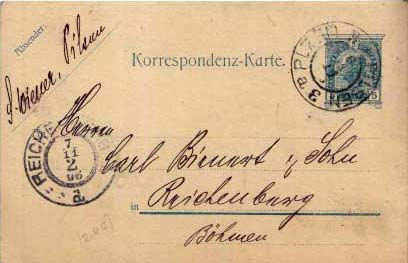 Absender:
S. Wiener, Pilsen
Korrespondenz-Karte.
3 PLZEŇ PILSEN
5
Herren
Carl Bienert & Sohn
REICHE
7
11
2
96
in Reichenberg
Böhmen